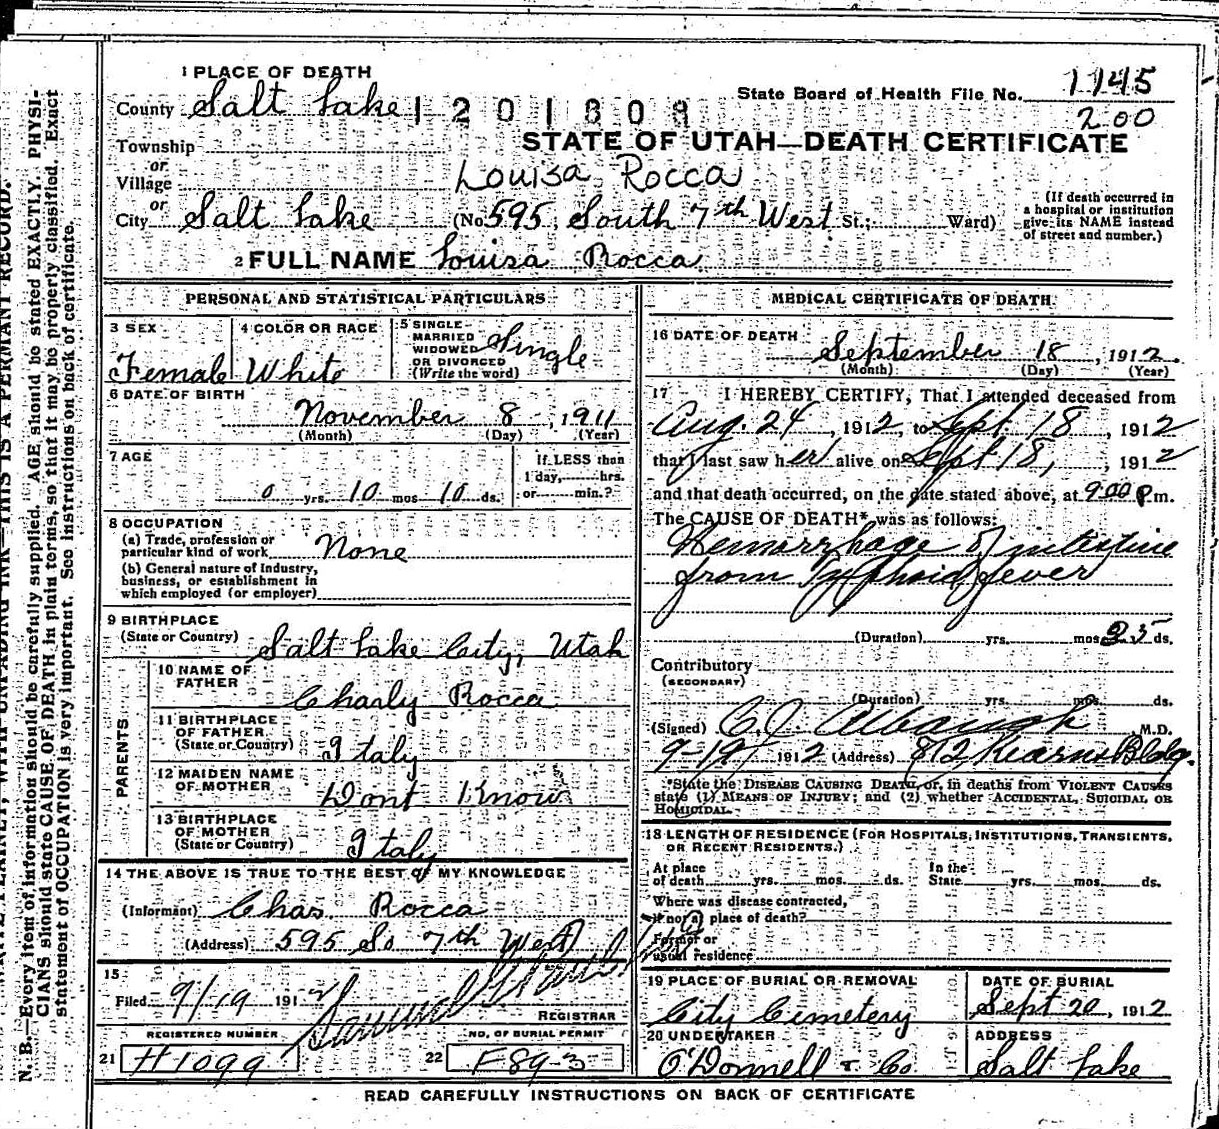 1 PLACE OF DEATH
County Salt Lake 1201309
State Board of Health File No. 1145
200
STATE OF UTAH—DEATH CERTIFICATE
Township
or
Village
Louisa Rocca
or
City Salt Lake (No 595, South 7th West St.; Ward)
(If death occurred in a hospital or institution give its NAME instead of street and number.)
2 FULL NAME Louisa Rocca
PERSONAL AND STATISTICAL PARTICULARS
3 SEX
Female
4 COLOR OR RACE
White
5 SINGLE
MARRIED
WIDOWED
OR DIVORCED
(Write the word)
Single
6 DATE OF BIRTH
November 8, 1911
(Month) (Day) (Year)
7 AGE
0 yrs. 10 mos 10 ds.
If LESS than
1 day, hrs.
or min.?
8 OCCUPATION
(a) Trade, profession or
particular kind of work None
(b) General nature of Industry,
business, or establishment in
which employed (or employer)
9 BIRTHPLACE
(State or Country) Salt Lake City, Utah
PARENTS
10 NAME OF
FATHER
Charly Rocca
11 BIRTHPLACE
OF FATHER
(State or Country) Italy
12 MAIDEN NAME
OF MOTHER Dont Know
13 BIRTHPLACE
OF MOTHER
(State or Country) Italy
14 THE ABOVE IS TRUE TO THE BEST OF MY KNOWLEDGE
(Informant) Chas Rocca
(Address) 595 So 7th West
15
Filed 9/19 1912
Samuel
REGISTRAR
REGISTERED NUMBER
21 H1099
NO. OF BURIAL PERMIT
22 F89-3
MEDICAL CERTIFICATE OF DEATH
16 DATE OF DEATH
September 18, 1912.
(Month) (Day) (Year)
17 I HEREBY CERTIFY, That I attended deceased from
Aug. 24, 1912, to Sept 18, 1912
that I last saw her alive on Sept 18, 1912
and that death occurred, on the date stated above, at 9:00 P m.
The CAUSE OF DEATH* was as follows:
Hemorrhage of intestine
from Typhoid fever
(Duration) yrs. mos 25 ds.
Contributory
(SECONDARY)
(Duration) yrs. mos. ds.
(Signed) M.D.
9-19, 1912 (Address) 812 Kearns Bldg.
*State the DISEASE CAUSING DEATH, or, in deaths from VIOLENT CAUSES
state (1) MEANS OF INJURY; and (2) whether ACCIDENTAL, SUICIDAL OR
HOMICIDAL.
18 LENGTH OF RESIDENCE (FOR HOSPITALS, INSTITUTIONS, TRANSIENTS,
OR RECENT RESIDENTS.)
At place
of death yrs. mos. ds.
In the
State yrs. mos. ds.
Where was disease contracted,
if not at place of death?
Former or
usual residence
19 PLACE OF BURIAL OR REMOVAL
City Cemetery
DATE OF BURIAL
Sept 20, 1912
20 UNDERTAKER
O'Donnell & Co
ADDRESS
Salt Lake
READ CAREFULLY INSTRUCTIONS ON BACK OF CERTIFICATE
N. B.—Every item of information should be carefully supplied. AGE should be stated EXACTLY. PHYSI-
CIANS should state CAUSE OF DEATH in plain terms, so that it may be properly classified. Exact
statement of OCCUPATION is very important. See instructions on back of certificate.